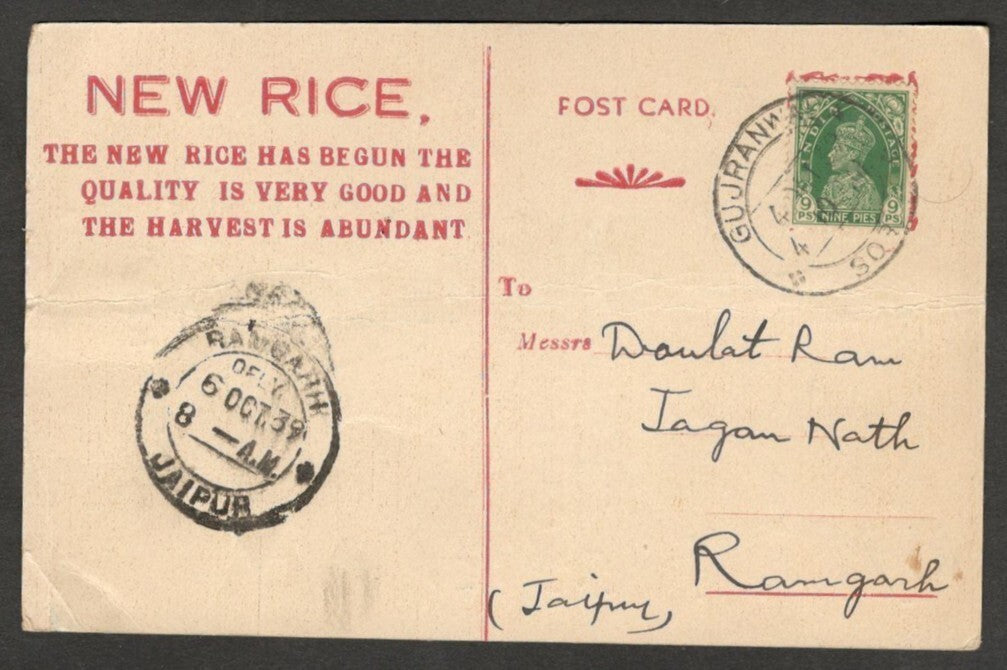 NEW RICE,
THE NEW RICE HAS BEGUN THE
QUALITY IS VERY GOOD AND
THE HARVEST IS ABUNDANT
RAMGARH
DELY.
6 OCT.39
8 — A.M.
JAIPUR
POST CARD.
INDIA POSTAGE
9 PS NINE PIES 9 PS
To
Messrs Daulat Ram
Jagan Nath
Ramgarh
(Jaipur)